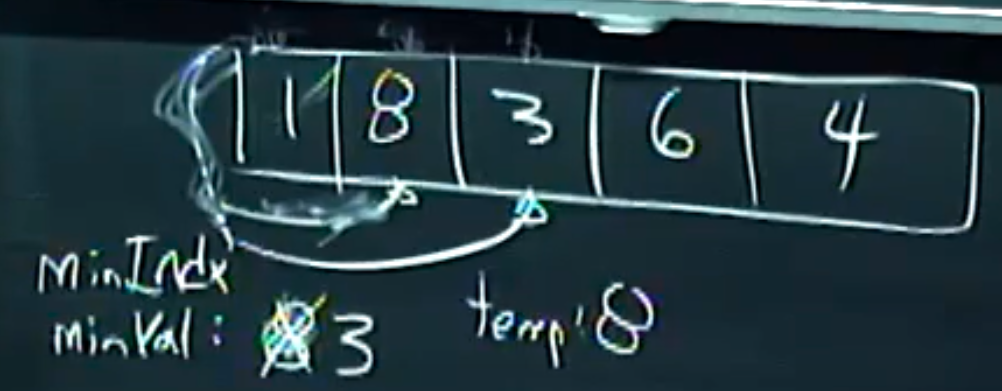 1 8 3 6 4
MinIndx
minVal: 3 temp: 8